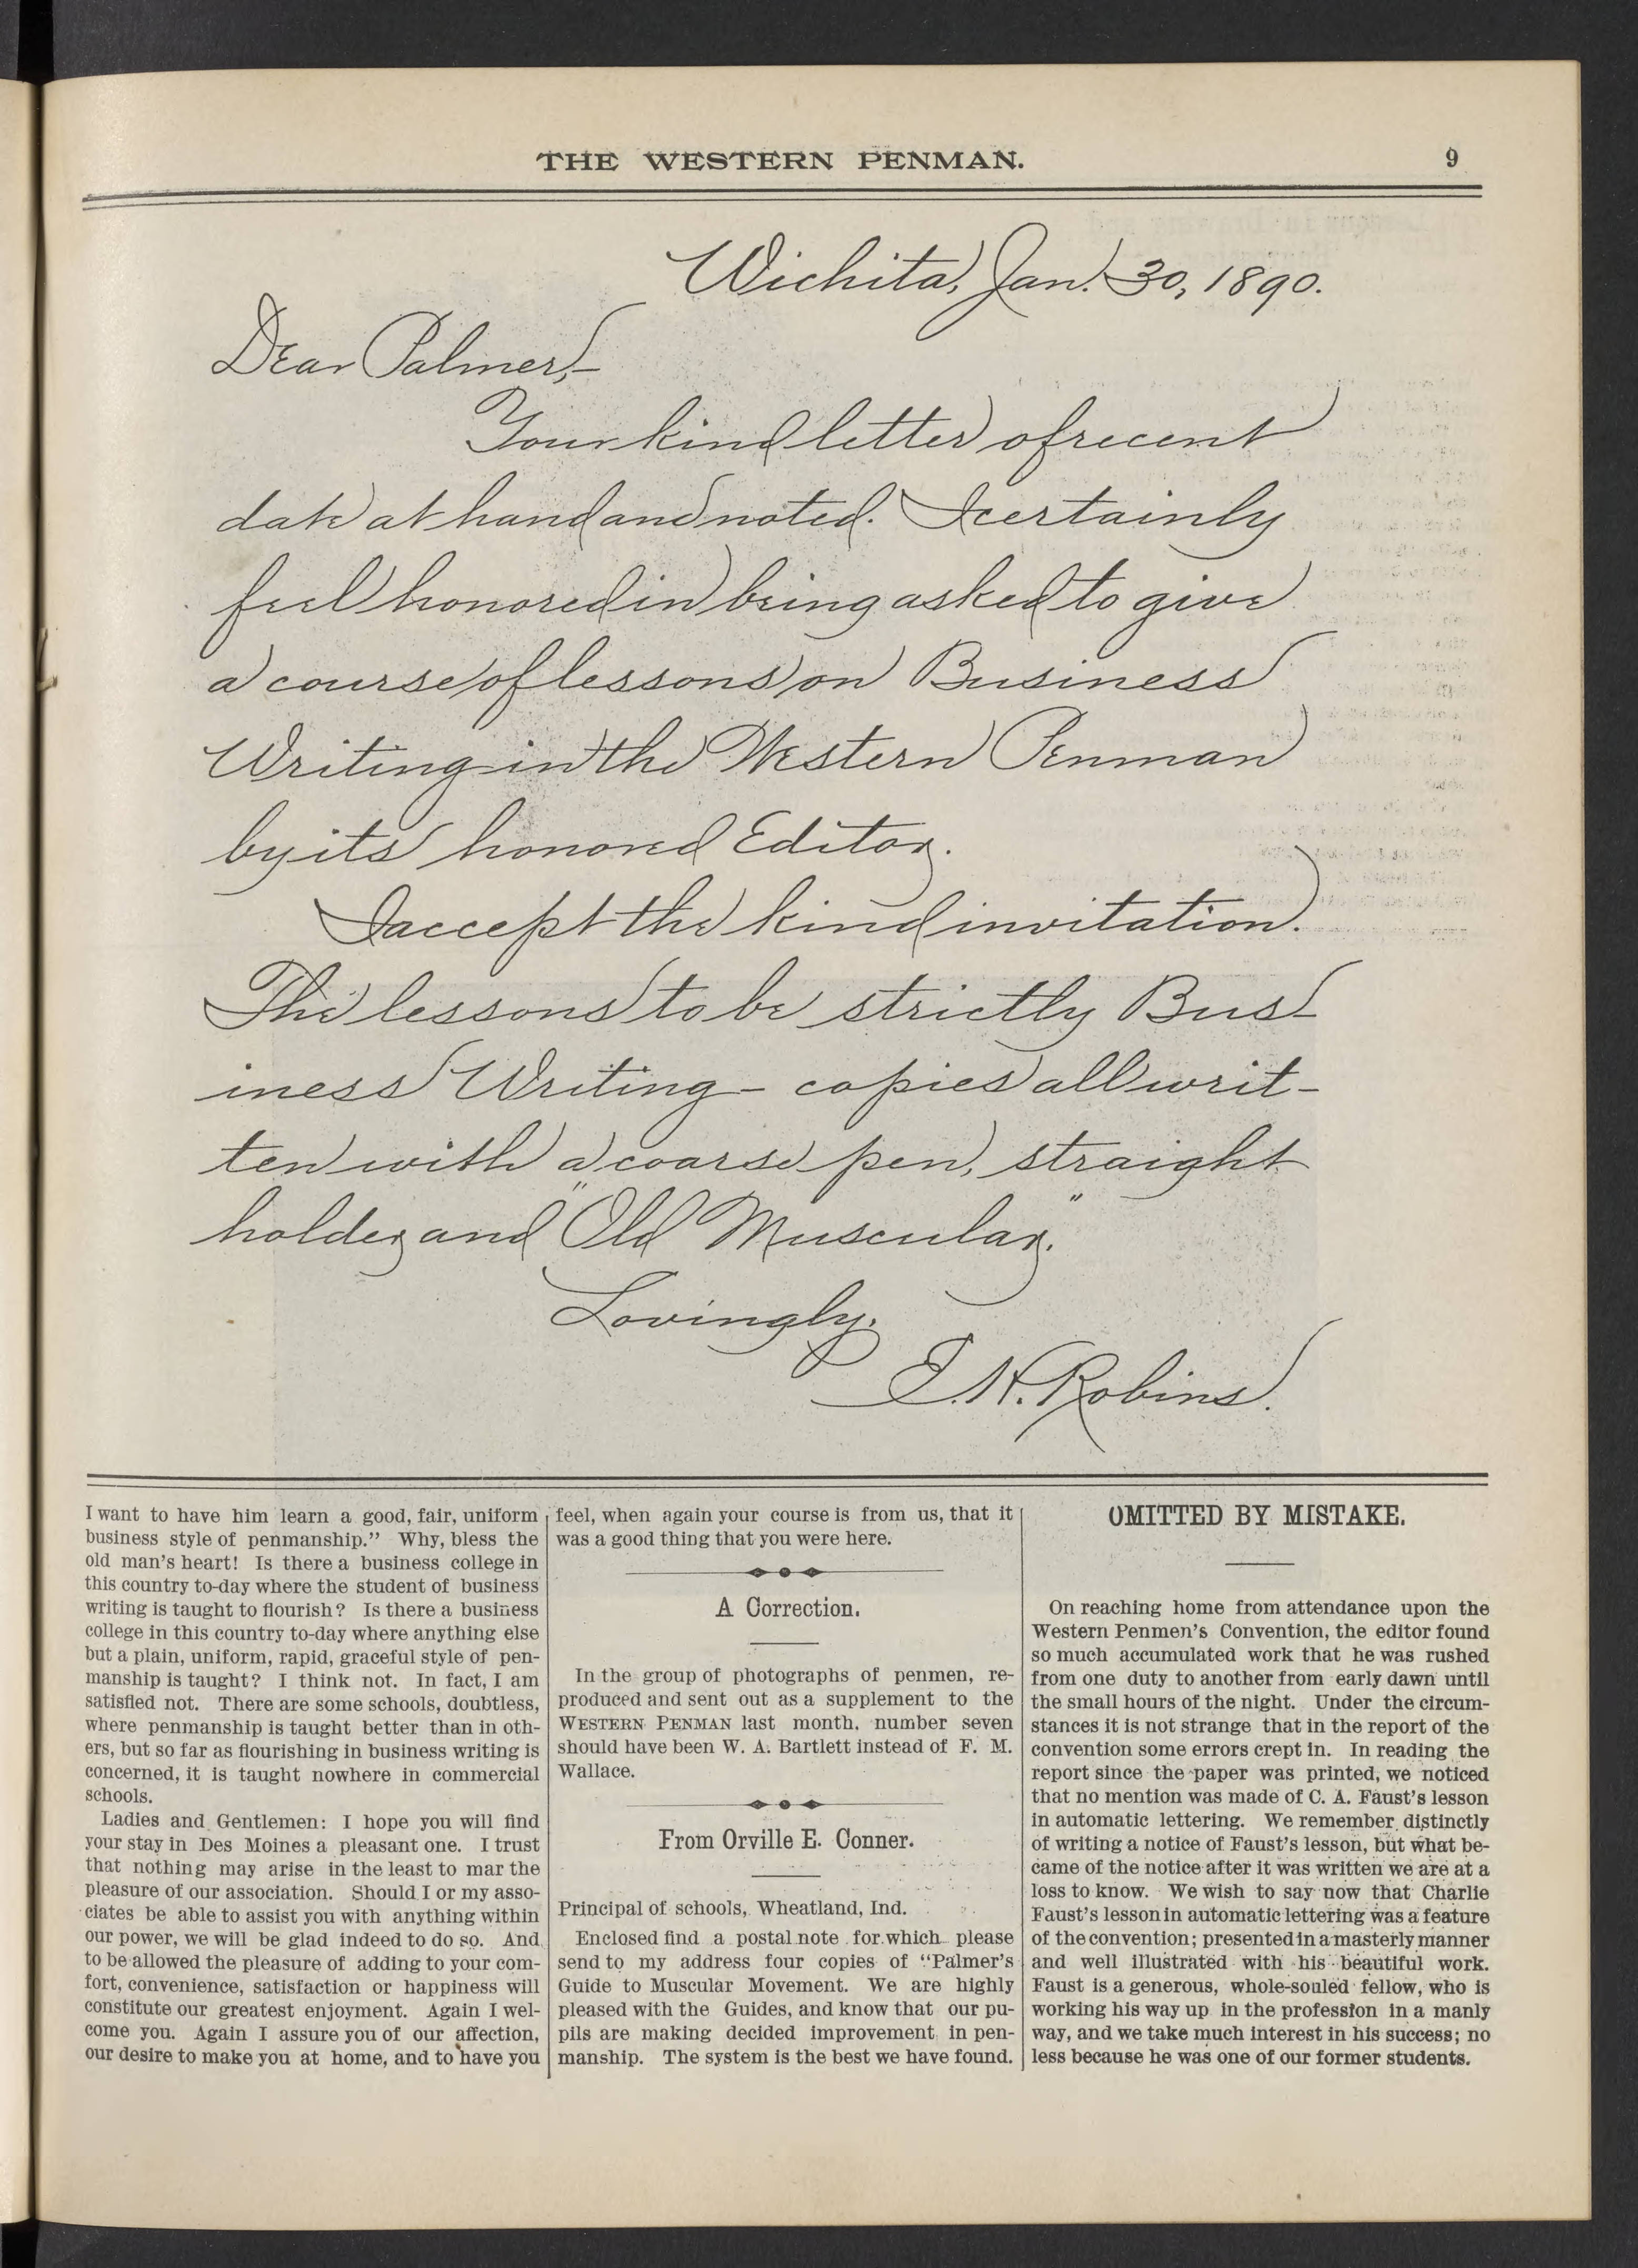 THE WESTERN PENMAN.
9
Wichita, Jan. 30, 1890.
Dear Palmer,-
Your kind letter of recent
date at hand and noted. I certainly
feel honored in being asked to give
a course of lessons on Business
Writing in the Western Penman
by its honored Editor.
I accept the kind invitation.
The lessons to be strictly Bus-
iness Writing - copies all writ-
ten with a coarse pen, straight
holder and "Old Muscular."
Lovingly,
E.H. Robins.
I want to have him learn a good, fair, uniform
business style of penmanship.” Why, bless the
old man's heart! Is there a business college in
this country to-day where the student of business
writing is taught to flourish? Is there a business
college in this country to-day where anything else
but a plain, uniform, rapid, graceful style of pen-
manship is taught? I think not. In fact, I am
satisfied not. There are some schools, doubtless,
where penmanship is taught better than in oth-
ers, but so far as flourishing in business writing is
concerned, it is taught nowhere in commercial
schools.
Ladies and Gentlemen: I hope you will find
your stay in Des Moines a pleasant one. I trust
that nothing may arise in the least to mar the
pleasure of our association. Should I or my asso-
ciates be able to assist you with anything within
our power, we will be glad indeed to do so. And
to be allowed the pleasure of adding to your com-
fort, convenience, satisfaction or happiness will
constitute our greatest enjoyment. Again I wel-
come you. Again I assure you of our affection,
our desire to make you at home, and to have you
feel, when again your course is from us, that it
was a good thing that you were here.
A Correction.
In the group of photographs of penmen, re-
produced and sent out as a supplement to the
WESTERN PENMAN last month, number seven
should have been W. A. Bartlett instead of F. M.
Wallace.
From Orville E. Conner.
Principal of schools, Wheatland, Ind.
Enclosed find a postal note for which please
send to my address four copies of “Palmer's
Guide to Muscular Movement. We are highly
pleased with the Guides, and know that our pu-
pils are making decided improvement in pen-
manship. The system is the best we have found.
OMITTED BY MISTAKE.
On reaching home from attendance upon the
Western Penmen's Convention, the editor found
so much accumulated work that he was rushed
from one duty to another from early dawn until
the small hours of the night. Under the circum-
stances it is not strange that in the report of the
convention some errors crept in. In reading the
report since the paper was printed, we noticed
that no mention was made of C. A. Faust's lesson
in automatic lettering. We remember distinctly
of writing a notice of Faust's lesson, but what be-
came of the notice after it was written we are at a
loss to know. We wish to say now that Charlie
Faust's lesson in automatic lettering was a feature
of the convention; presented in a masterly manner
and well illustrated with his beautiful work.
Faust is a generous, whole-souled fellow, who is
working his way up in the profession in a manly
way, and we take much interest in his success; no
less because he was one of our former students.